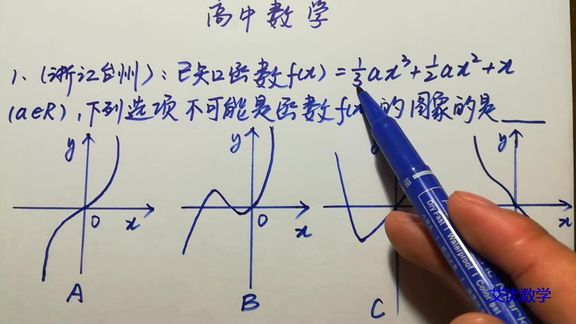 高中数学
1、(浙江台州):已知函数f(x)=⅓ax³+½ax²+x
(a∈R),下列选项不可能是函数f(x 的图象的是____
y y y
0 x 0 x x
A B C
艾优数学